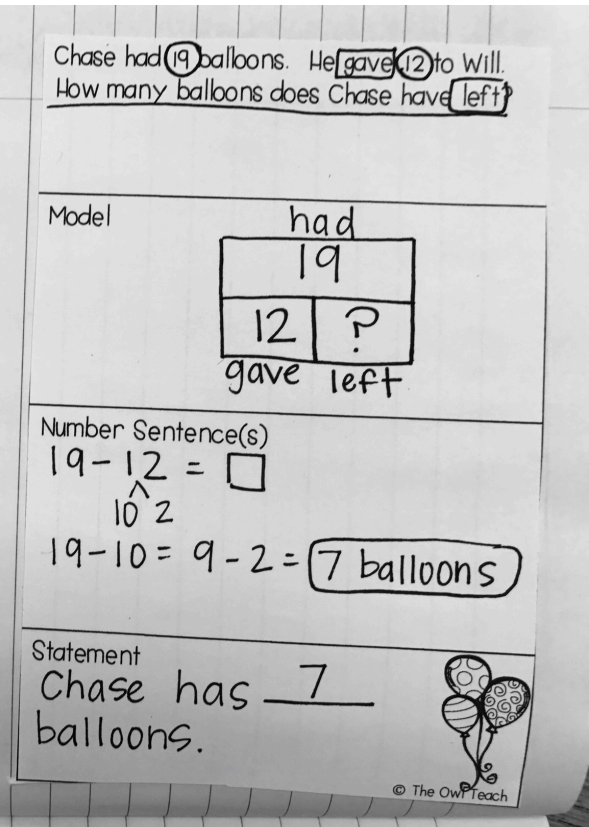 Chase had 19 balloons. He gave 12 to Will.
How many balloons does Chase have left?
Model
had
19
12 ?
gave left
Number Sentence(s)
19 - 12 = □
10 2
19 - 10 = 9 - 2 = 7 balloons
Statement
Chase has 7
balloons.
© The Owl Teach